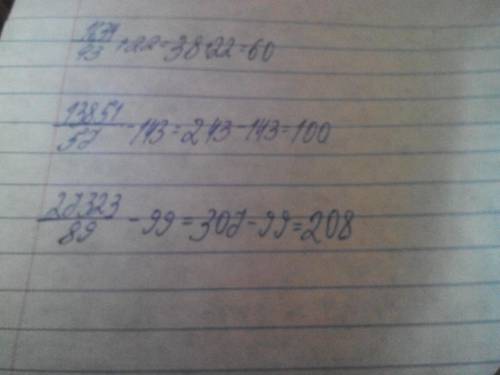 1634/43 + 22 = 38 + 22 = 60
13851/57 - 143 = 243 - 143 = 100
27323/89 - 99 = 307 - 99 = 208